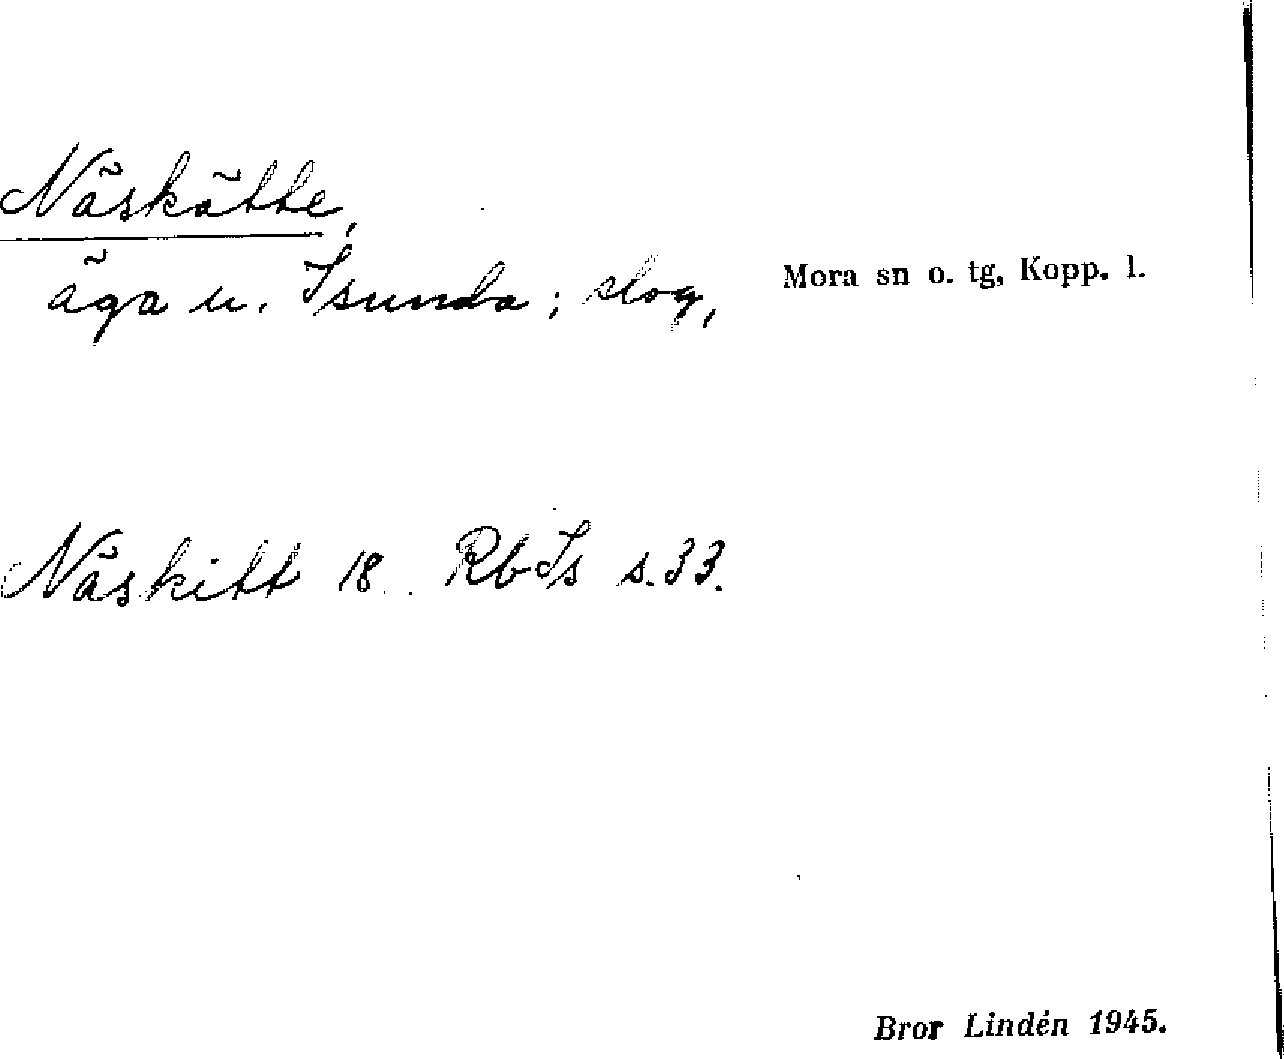 Näskätte,
äga u. Isunda; slog,
Mora sn o. tg, Kopp. l.
Näskitt 18.. Rb Is s. 33.
Bror Lindén 1945.